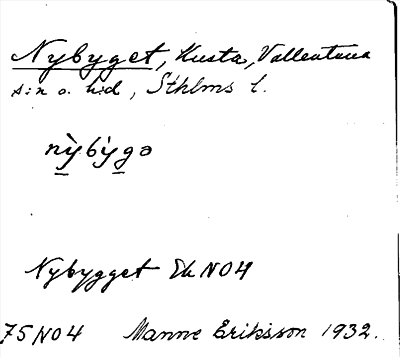 Nybyget, Kusta, Vallentuna
s:n o. h:d, Sthlms l.
nỳbẏgə
Nybygget Ek NO4
75 NO4 Manne Eriksson 1932.